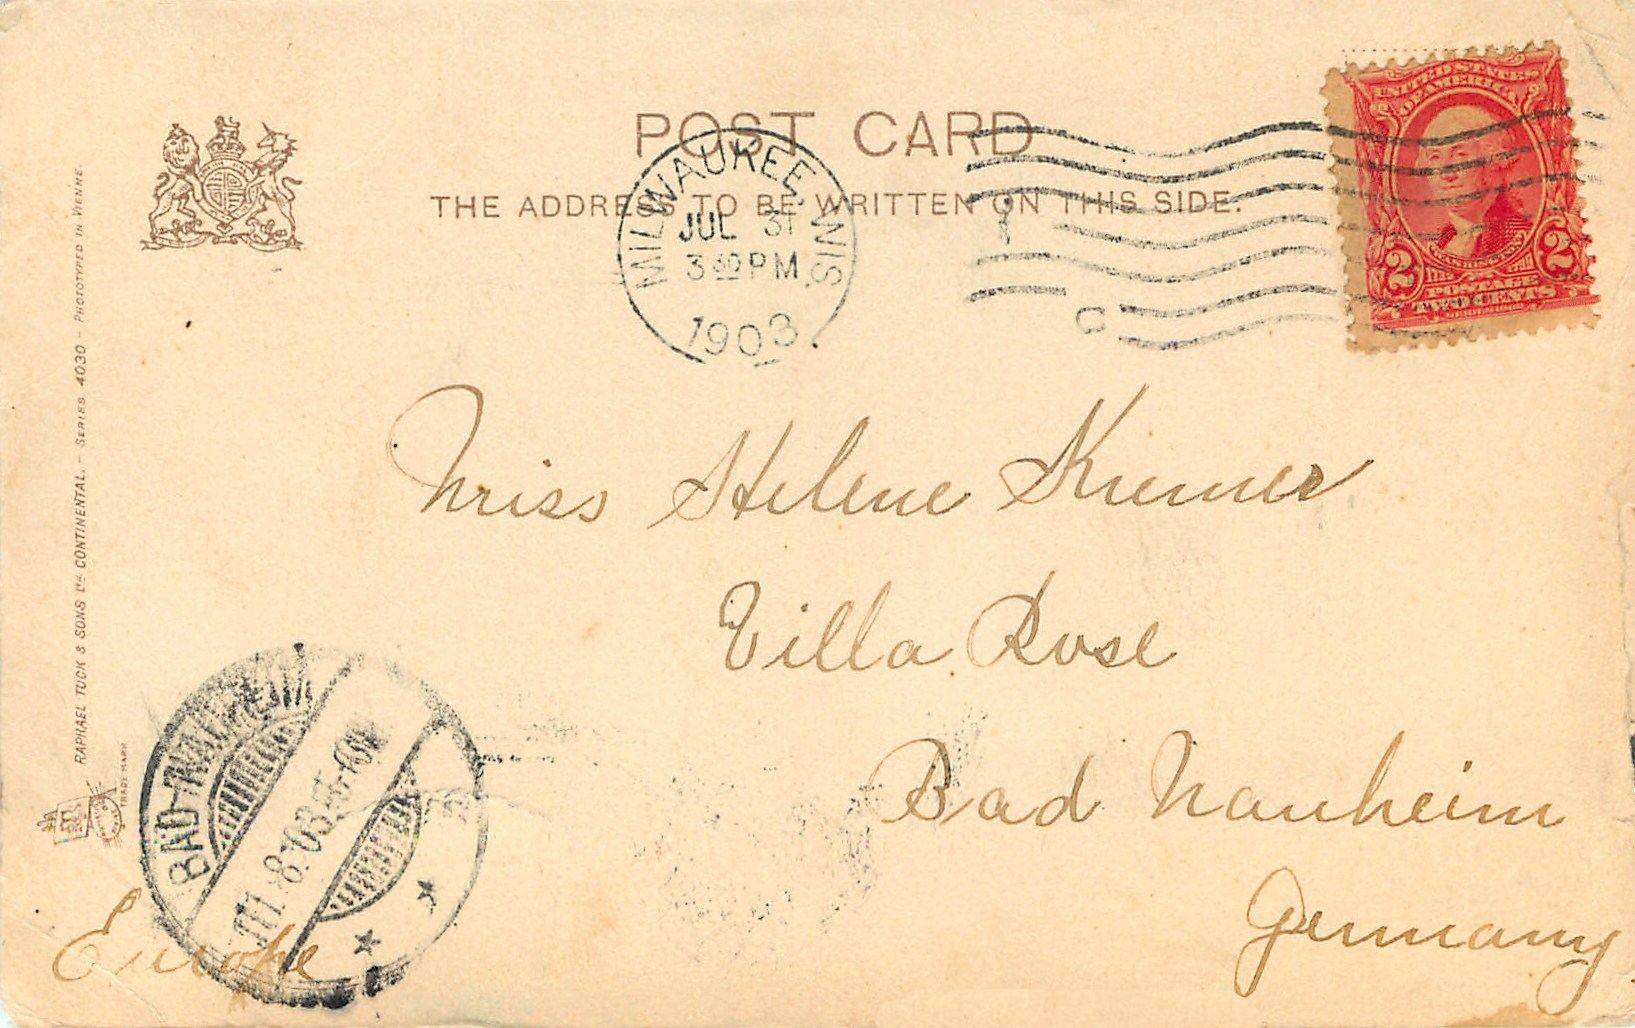 POST CARD
THE ADDRESS TO BE WRITTEN ON THIS SIDE.
MILWAUKEE, WIS.
JUL 31
3 30 PM
1903
C
UNITED STATES
OF AMERICA
WASHINGTON
2 2
POSTAGE
TWO CENTS
Miss Helene Kremer
Villa Rose
Bad Nauheim
Germany
Europe
BAD-NAUHEIM
11.8.03.5-6N
RAPHAEL TUCK & SONS Ld CONTINENTAL. - SERIES 4030 - PHOTOTYPED IN VIENNE.
TRADE MARK